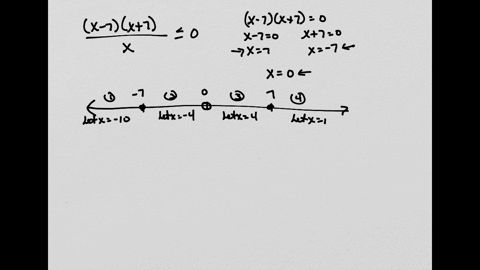 (x-7)(x+7) / x ≤ 0
(x-7)(x+7)=0
x-7=0 x+7=0
→x=7 x=-7←
x=0←
① -7 ② 0 ③ 7 ④
let x=-10 let x=-4 let x=4 let x=1